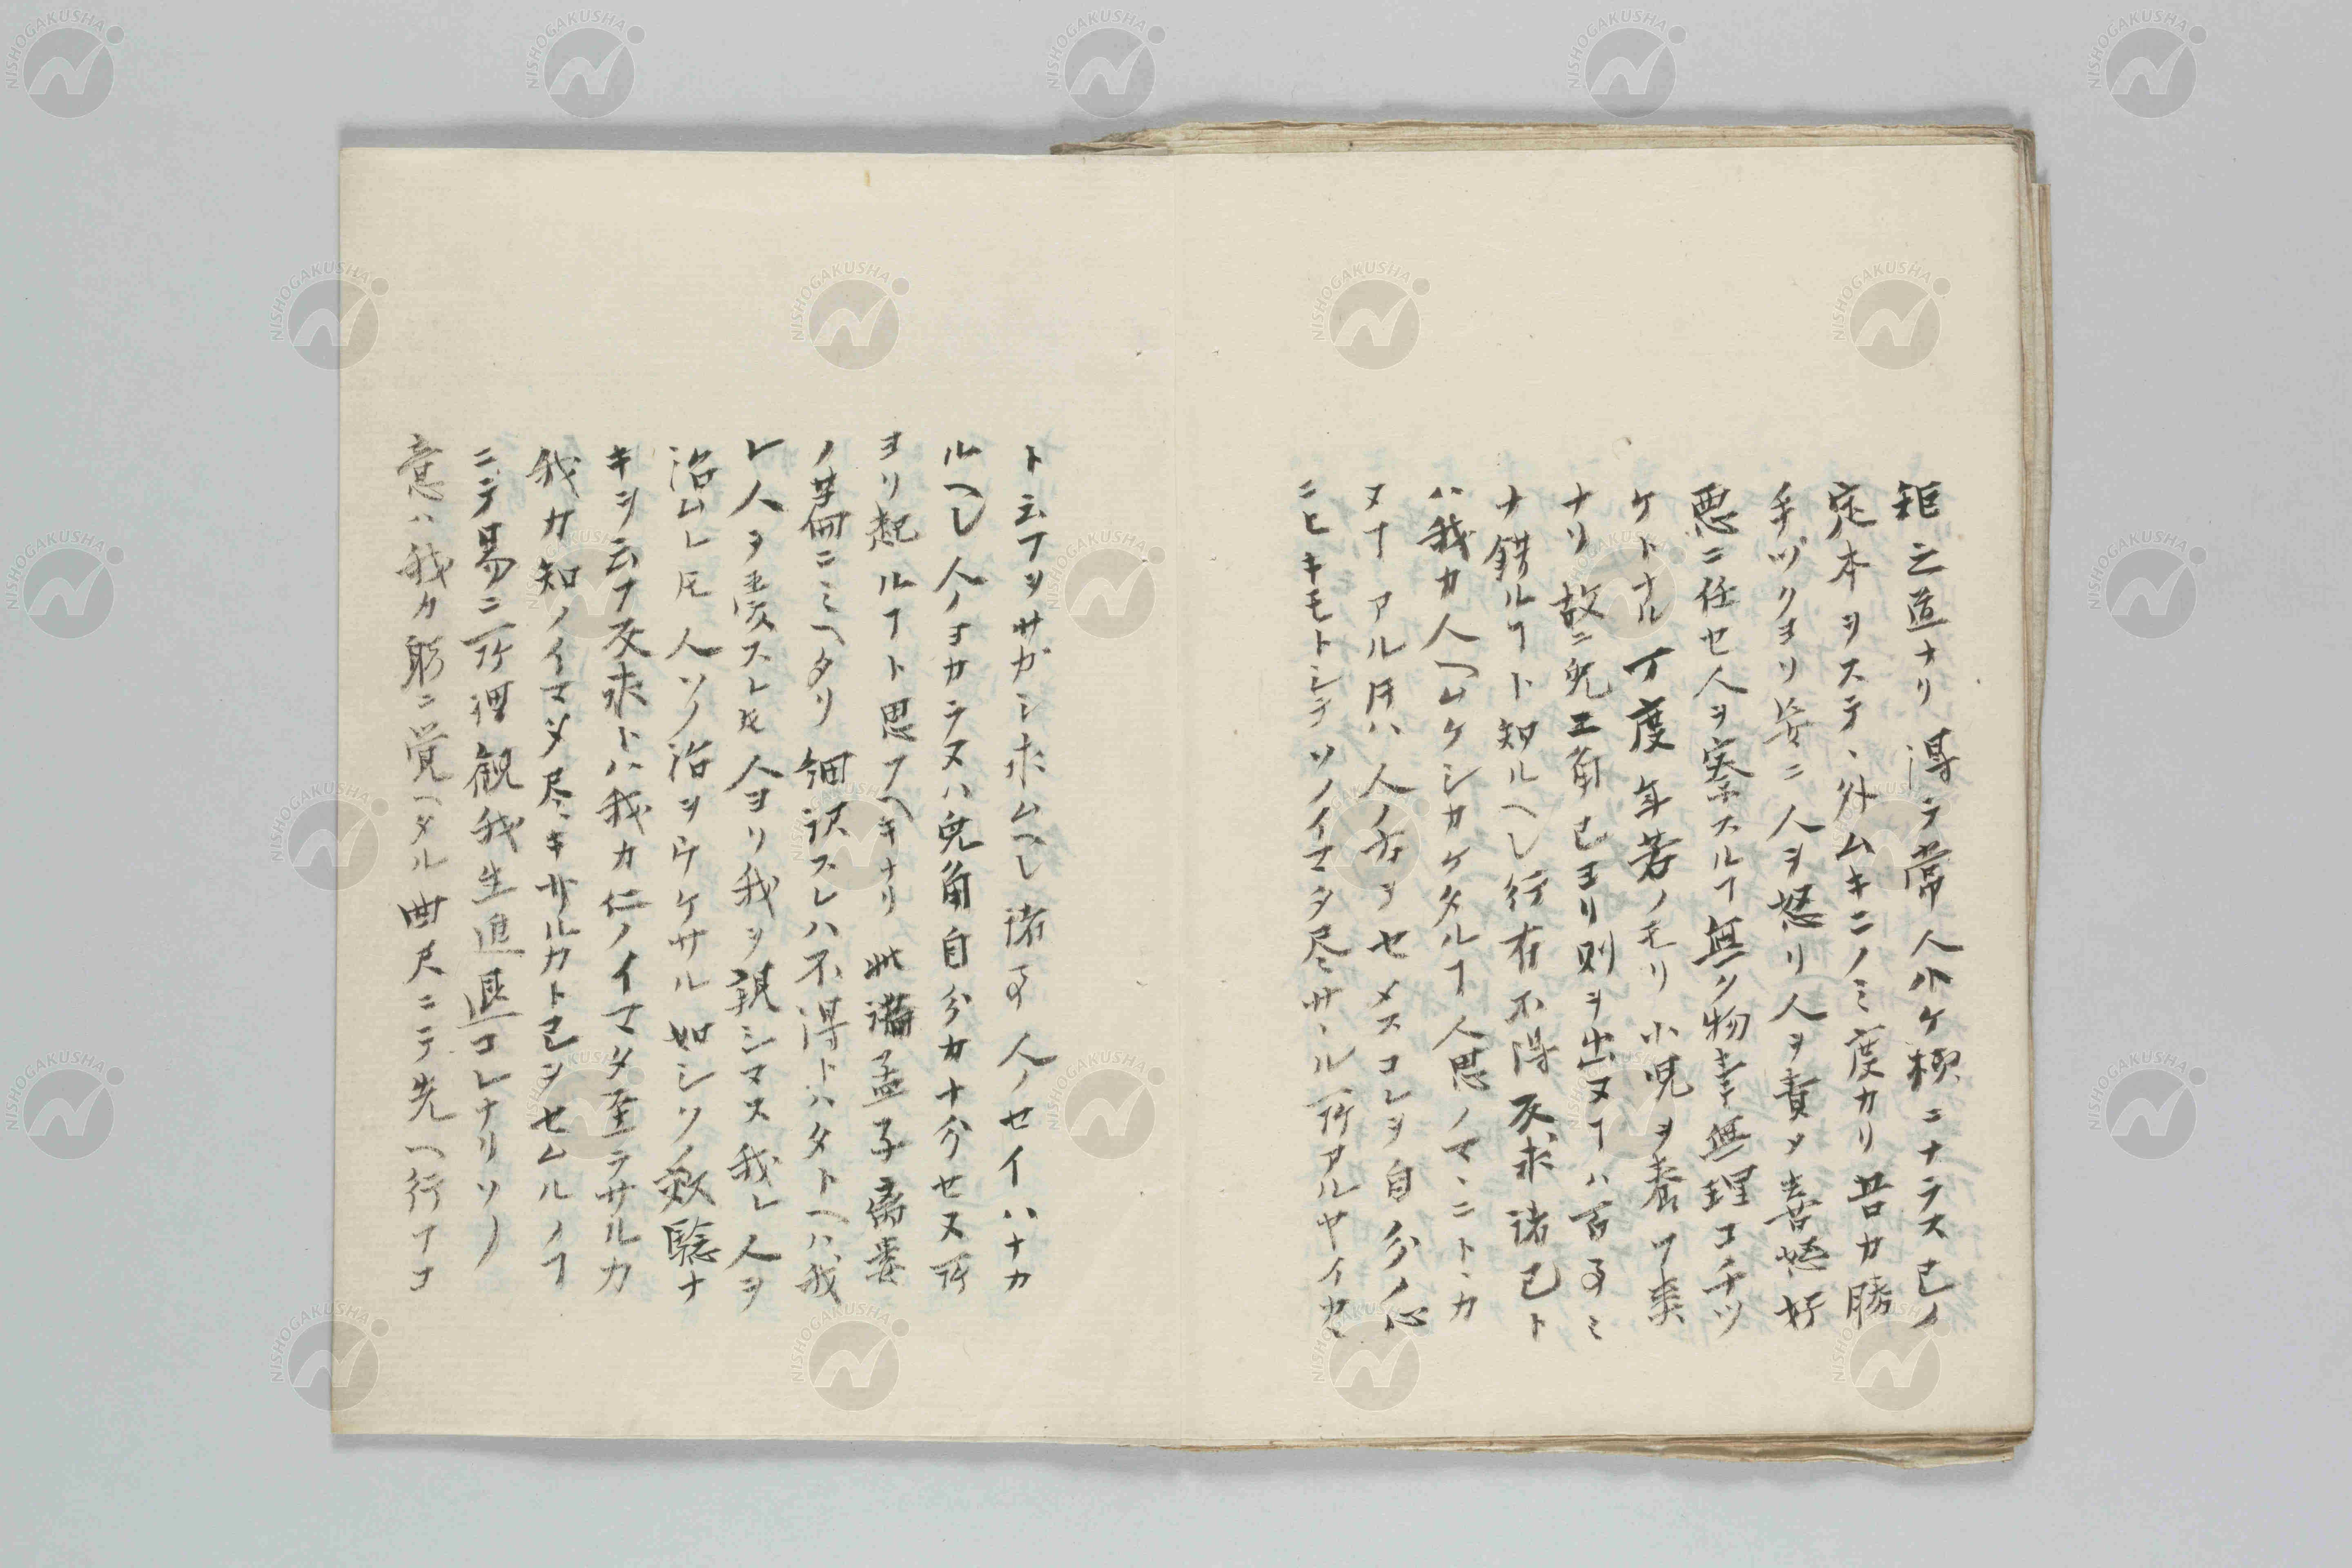 矩之道ナリ得テ常人小ケ極ニナラス己ノ
定本ヲステヽ外ムキニノミ度カリ昔カ勝
手ヅクヨリ皆ニ人ヲ怒リ人ヲ責メ喜怒好
悪ニ任セ人ヲ察スルヿ無ク物事無理コチツ
ケトナルヿ丁度年若ノモリ小児ヲ養ツ
ナリ故ニ兎エ角己ヨリ則ヲ出ヌヿハ百事ミ
ナ錯ルヿト知ルヘし行有不得反求諸己ト
ハ我カ人ヘムケシカケタルヿ人思ノマヽニトヽカ
ヌヿアル片ハ人ノ方ヲセメスコレヲ自分ノ心
ニヒキモトシテソノイマタ尽サヽル所アルヤイカヽ
ト云フヲサガシ求ムヘし諸事人ノセイハナカ
ルヘし人ノヨカラヌハ兎角自分カナ分セヌ所
ヨリ起ルヿト思フヘキナリ此講孟子離婁
ノ篇ニミヘタリ細訳スレハ不得トハタトヘハ我
レ人ヲ愛スレ圧人ヨリ我ヲ親シマス我レ人ヲ
治ムレ圧人ソノ治ヲウケサル如シソノ効験ナ
キヲ云フ反求トハ我カ仁ノイマタ至ラサルカ
我カ知ノイマダ尽キサルカト己ヲセムルノヿ
ニテ易ニ所謂観我生進退コレナリソノ
意ハ我カ躬ニ覚ヘタル曲尺ニテ先ヘ行フコ